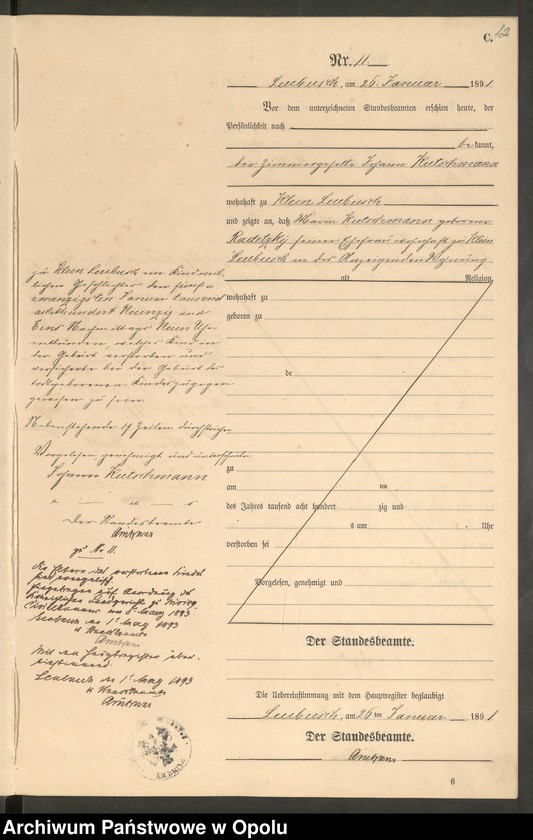 C. 12
Nr. 11
Leubusch, am 26. Januar 1891
Vor dem unterzeichneten Standesbeamten erschien heute, der
Persönlichkeit nach
be kannt,
der Zimmergeselle Johann Kutschmann
wohnhaft zu Klein Leubusch
und zeigte an, daß Maria Kutschmann geborene
Radetzky seine Ehefrau wohnhaft zu Klein
Leubusch in der Anzeigenden Wohnung
alt Religion,
wohnhaft zu
geboren zu
de
zu
am ten
des Jahres tausend acht hundert zig und
s um Uhr
verstorben sei
Vorgelesen, genehmigt und
Der Standesbeamte.
Die Uebereinstimmung mit dem Hauptregister beglaubigt
Leubusch, am 26 ten Januar 1891
Der Standesbeamte.
6
zu Klein Leubusch ein Kind weib-
lichen Geschlechtes den fünf u
zwanzigsten Januar tausend
achthundert Neunzig und
Eins Nachmittags Neun Uhr
entbunden, welches Kind in
der Geburt verstorben und
versicherte bei der Geburt des
todtgeborenen Kindes zugegen
gewesen zu sein.
Nebenstehende 14 Zeilen durchstrichen
Vorgelesen genehmigt und unterschrieben
Johann Kutschmann
Der Standesbeamte
zu No 11.
Leubusch den 1t May 1893
Mit dem Hauptregister über-
einstimmend.
Leubusch den 1t May 1893
Archiwum Państwowe w Opolu